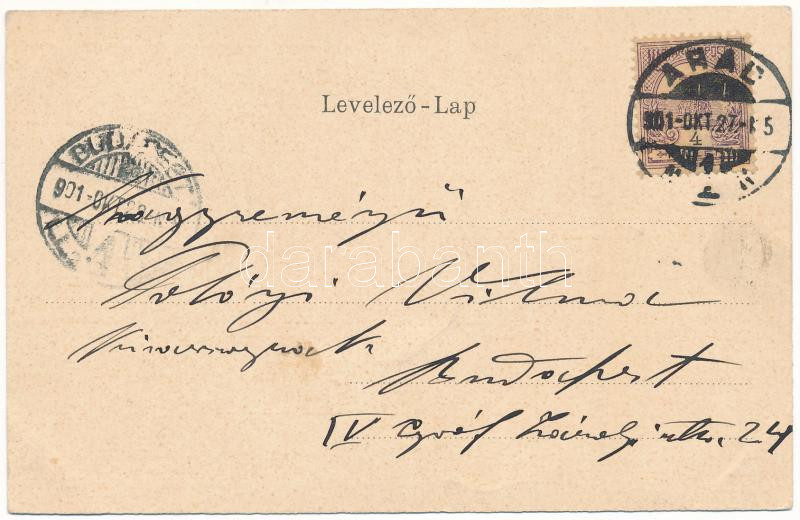 Levelező-Lap
ARAD
901-OKT.27-
BUDAPEST
901-OKT.28
darabanth
Nagyreményű
Vilma
Budapest
IV Gróf Károlyi utca 24